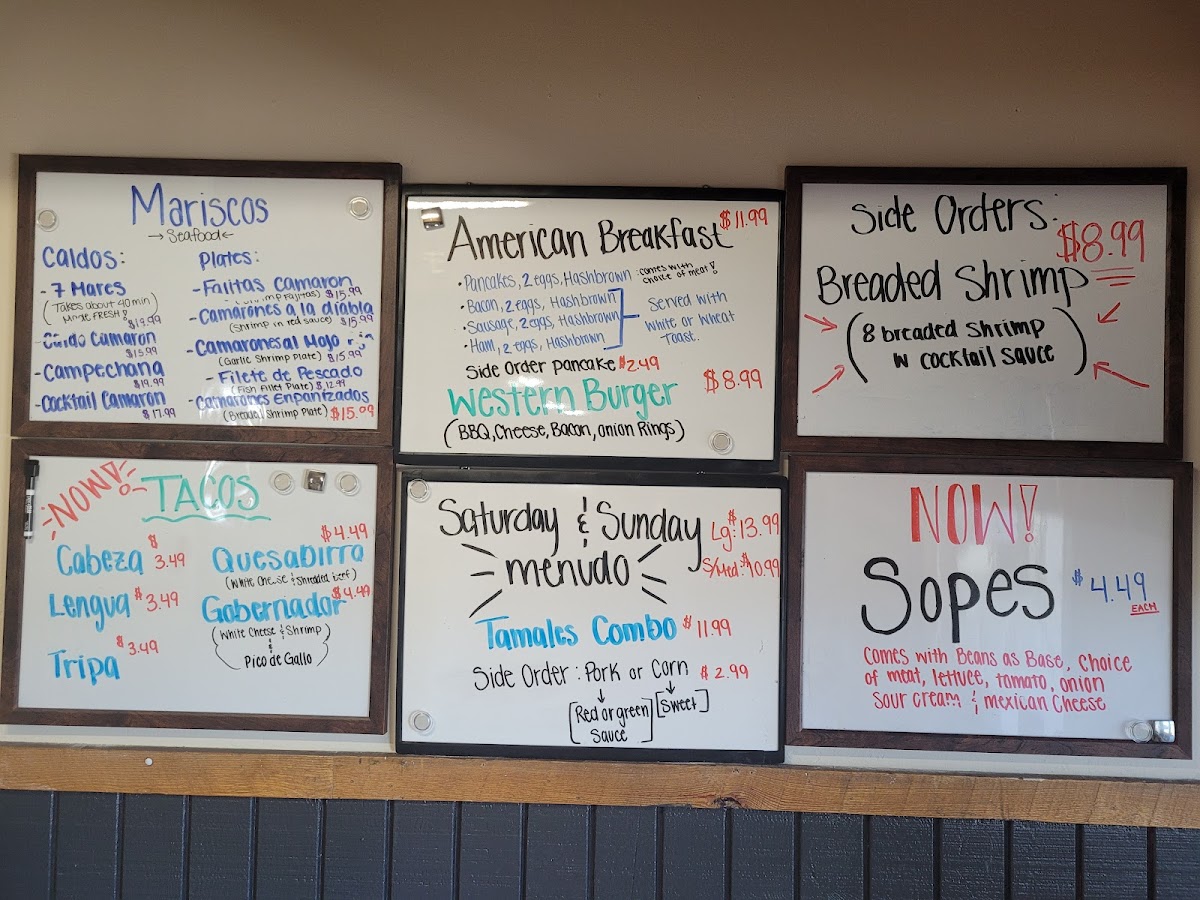 Mariscos
→ Seafood ←
Caldos:
- 7 Mares
(Takes about 40 min
Made FRESH!)
$19.99
- Caldo Camaron
$15.99
- Campechana
$19.99
- Cocktail Camaron
$17.99
Plates:
- Fajitas Camaron
$15.99
- Camarones a la diabla
(Shrimp in red sauce) $15.99
- Camarones al Mojo
(Garlic Shrimp Plate) $15.99
- Filete de Pescado
(Fish Fillet Plate) $12.99
- Camarones Enpanizados
(Breaded Shrimp Plate) $15.99
American Breakfast $11.99
• Pancakes, 2 eggs, Hashbrown : comes with choice of meat!
• Bacon, 2 eggs, Hashbrown
• Sausage, 2 eggs, Hashbrown
• Ham, 2 eggs, Hashbrown
Served with
White or Wheat
Toast.
Side Order pancake $2.49
Western Burger $8.99
(BBQ, Cheese, Bacon, onion Rings)
Side Orders:
$8.99
Breaded Shrimp
(8 breaded Shrimp
w cocktail sauce)
NOW! TACOS
Cabeza $3.49
Lengua $3.49
Tripa $3.49
$4.49
Quesabirra
(White Cheese & Shredded beef)
Goberniador $4.49
(White Cheese & Shrimp
&
Pico de Gallo)
Saturday & Sunday
menudo
Lg: $13.99
S/Med: $10.99
Tamales Combo $11.99
Side Order : Pork or Corn $2.99
[Red or green
Sauce]
[Sweet]
NOW!
Sopes $4.49
EACH
Comes with Beans as Base, Choice
of meat, lettuce, tomato, onion
Sour cream & mexican Cheese